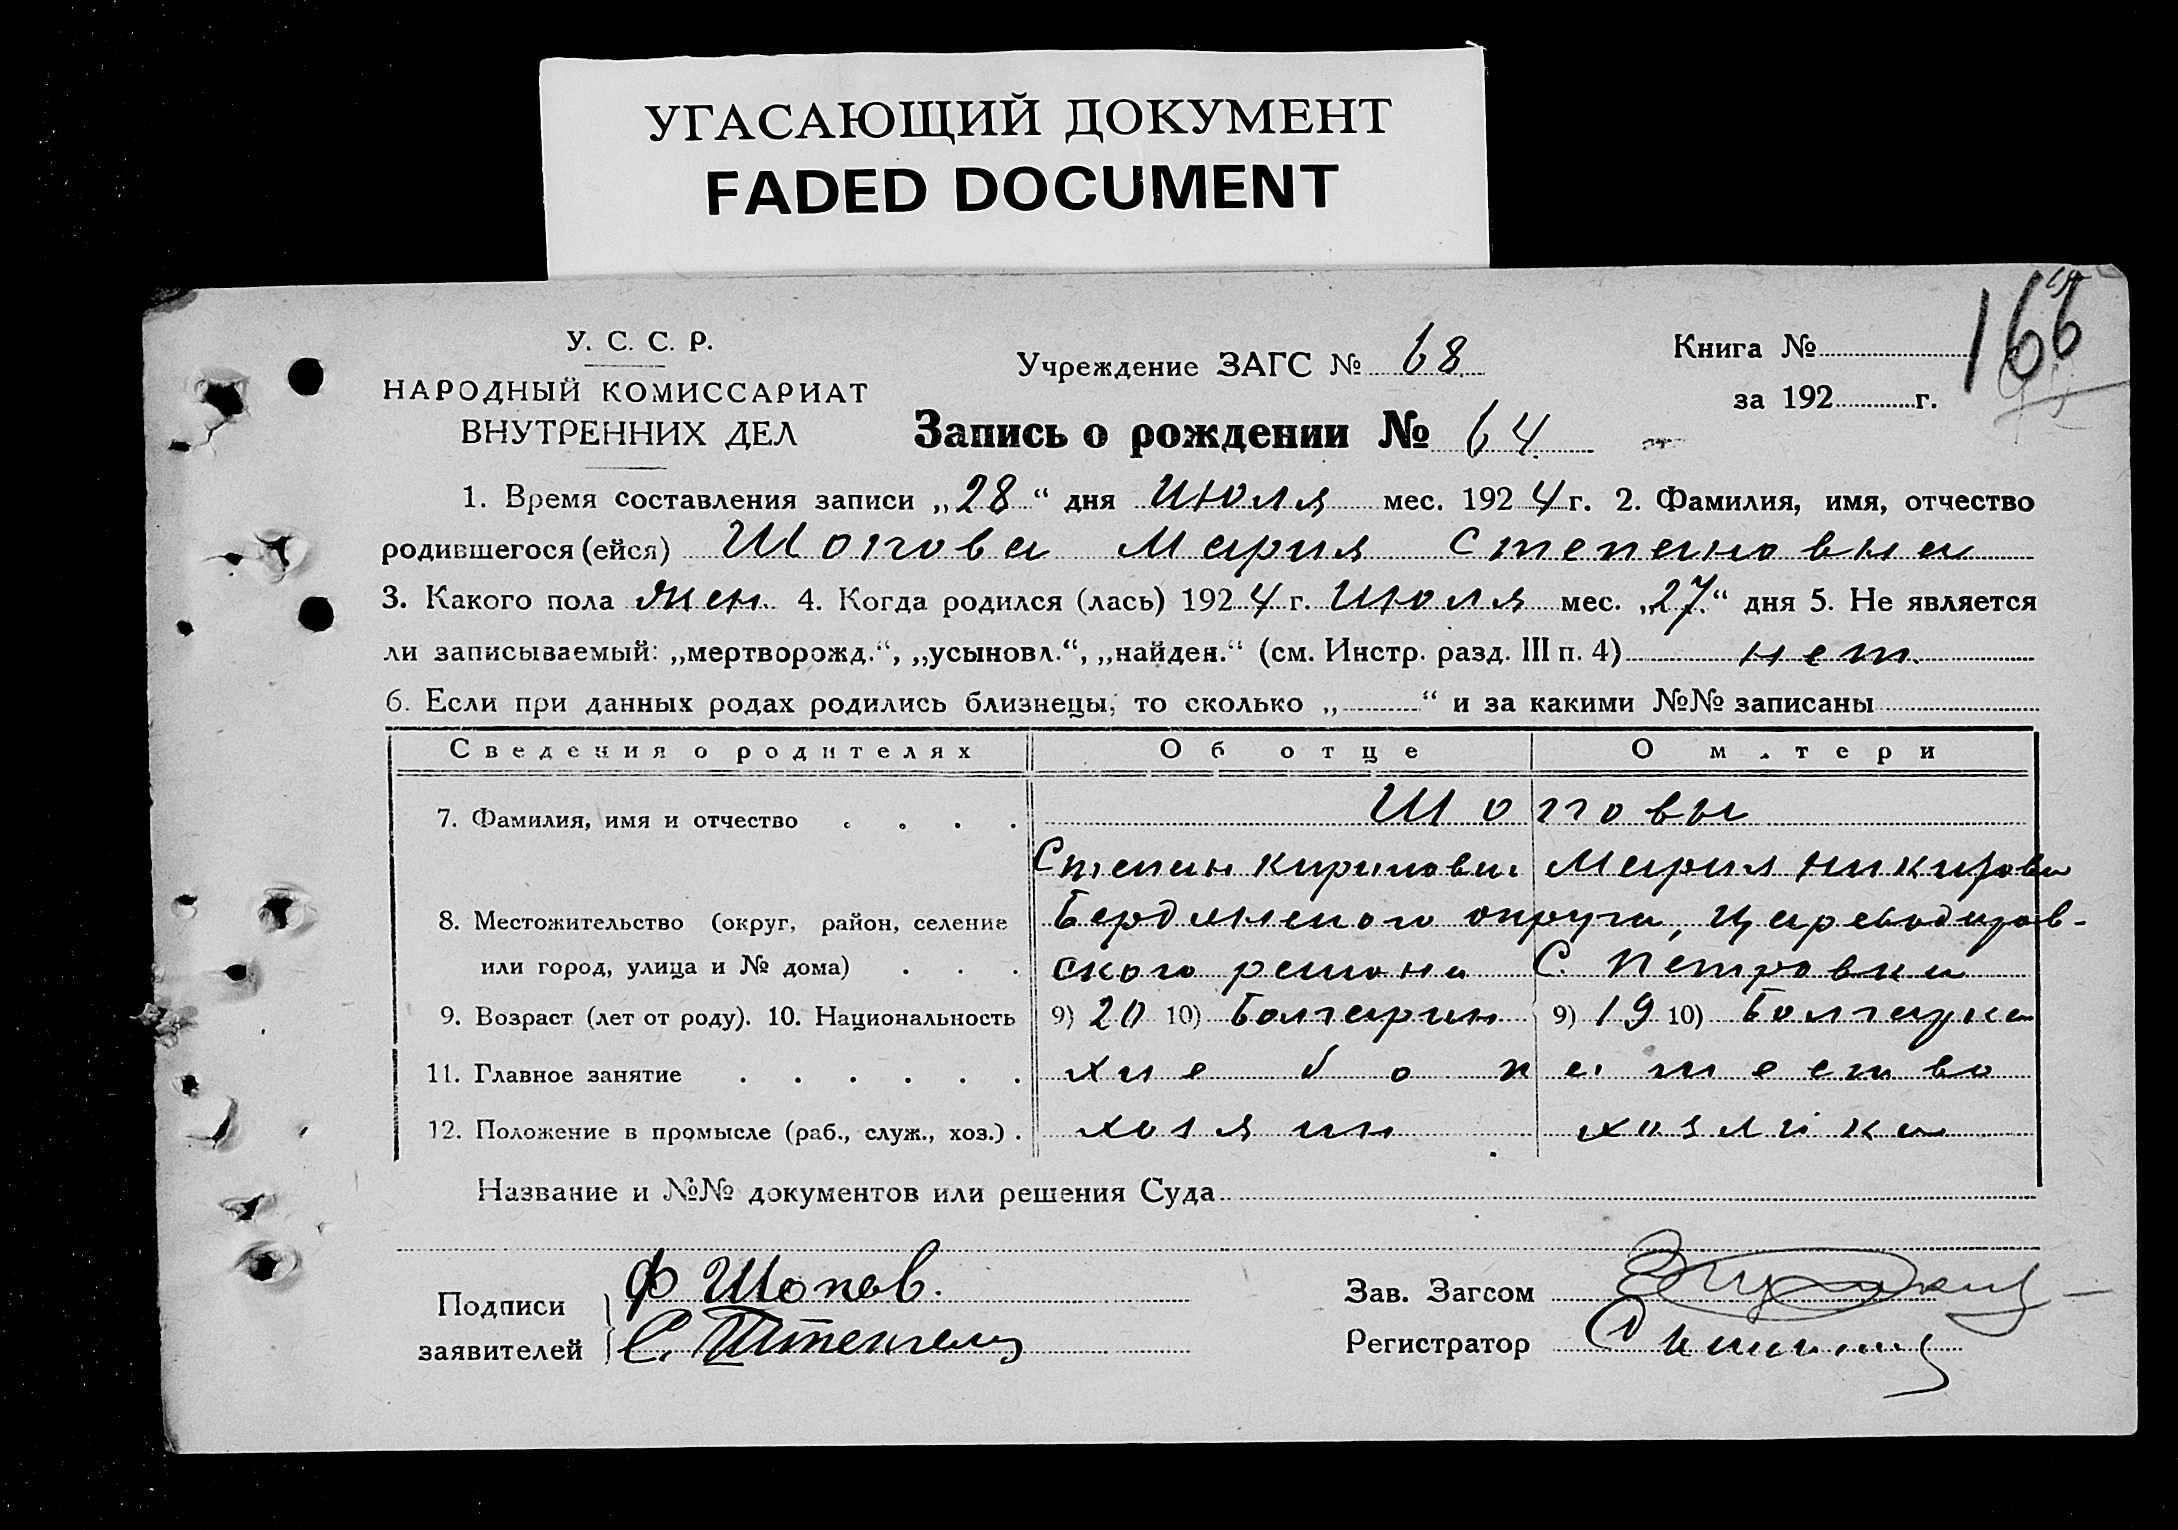 УГАСАЮЩИЙ ДОКУМЕНТ
FADED DOCUMENT
У. С. С. Р.
НАРОДНЫЙ КОМИССАРИАТ
ВНУТРЕННИХ ДЕЛ
Учреждение ЗАГС № 68
Книга № 166
за 192 г.
Запись о рождении № 64
1. Время составления записи „28“ дня Июля мес. 1924 г. 2. Фамилия, имя, отчество
родившегося (ейся) Шопова Мария Степановна
3. Какого пола жен. 4. Когда родился (лась) 1924 г. Июля мес. „27“ дня 5. Не является
ли записываемый: „мертворожд.“, „усыновл.“, „найден.“ (см. Инстр. разд. III п. 4) нет.
6. Если при данных родах родились близнецы, то сколько „ “ и за какими №№ записаны
Сведения о родителях Об отце О м.тери
7. Фамилия, имя и отчество . . . . Шоповы
Степан Кирилович Мария
8. Местожительство (округ, район, селение Бердянского округа, Цареводаров-
или город, улица и № дома) . . . ского района С. Петровка
9. Возраст (лет от роду). 10. Национальность 9) 20 10) Болгарин 9) 19 10) Болгарка
11. Главное занятие . . . . . . хлебопашество
12. Положение в промысле (раб., служ., хоз.) . хозяин хозяйка
Название и №№ документов или решения Суда
Подписи заявителей
Ф Шопов.
С.
Зав. Загсом
Регистратор